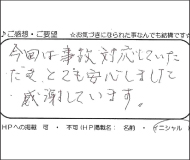 ♪ご感想・ご要望 ☆お気づきになられた事なんでも結構です☆
今回は事故対応していた
だき、とても安心しました
感謝しています。
HPへの掲載 可 ・ 不可(HP掲載名: 名前 ・ イニシャル